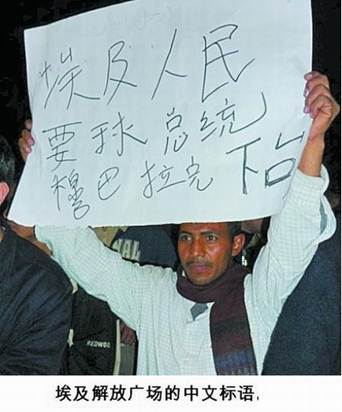 埃及人民
要球总统
穆巴拉克下台
REDWOO
埃及解放广场的中文标语.